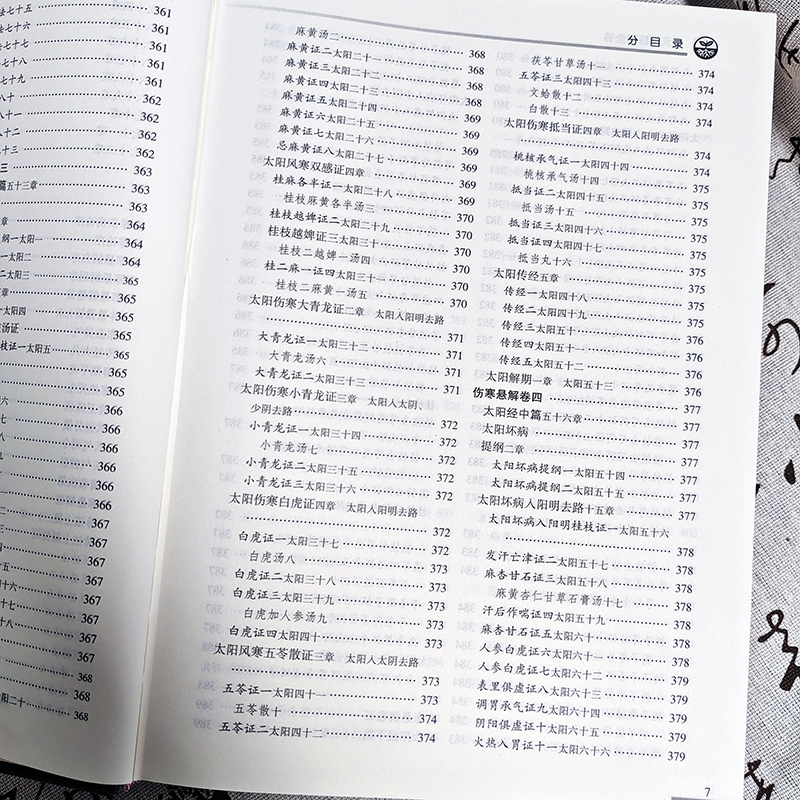 法七十五 361
法七十六 361
法七十七 361
七十八 361
七十九 361
八十 362
八十一 362
八十二 362
八十三 362
三 363
篇五十三章 363
363
章 364
提纲一太阳一 364
一太阳二 364
二太阳三 365
章 365
一太阳四 365
汤证 365
枝证一太阳五 365
365
六 366
七 366
八 366
九 366
十 366
366
367
367
367
367
367
367
367
368
368
阳二十 368
分目录
麻黄汤二 368
麻黄证二太阳二十一 368
麻黄证三太阳二十二 368
麻黄证四太阳二十三 369
麻黄证五太阳二十四 369
麻黄证六太阳二十五 369
麻黄证七太阳二十六 369
忌麻黄证八太阳二十七 369
太阳风寒双感证四章 369
桂麻各半证一太阳二十八 369
桂枝麻黄各半汤三 370
桂枝越婢证二太阳二十九 370
桂枝越婢证三太阳三十 370
桂枝二越婢一汤四 370
桂二麻一证四太阳三十一 370
桂枝二麻黄一汤五 370
太阳伤寒大青龙证二章 太阳入阳明去路
371
大青龙证一太阳三十二 371
大青龙汤六 371
大青龙证二太阳三十三 371
太阳伤寒小青龙证三章 太阳入太阴、
少阴去路 372
小青龙证一太阳三十四 372
小青龙汤七 372
小青龙证二太阳三十五 372
小青龙证三太阳三十六 372
太阳伤寒白虎证四章 太阳入阳明去路
372
白虎证一太阳三十七 372
白虎汤八 373
白虎证二太阳三十八 373
白虎证三太阳三十九 373
白虎加人参汤九 373
白虎证四太阳四十 373
太阳风寒五苓散证三章 太阳入太阴去路
373
五苓证一太阳四十一 373
五苓散十 374
五苓证二太阳四十二 374
茯苓甘草汤十一 374
五苓证三太阳四十三 374
文蛤散十二 374
白散十三 374
太阳伤寒抵当证四章 太阳入阳明去路
374
桃核承气证一太阳四十四 374
桃核承气汤十四 375
抵当证二太阳四十五 375
抵当汤十五 375
抵当证三太阳四十六 375
抵当证四太阳四十七 375
抵当丸十六 375
太阳传经五章 375
传经一太阳四十八 375
传经二太阳四十九 375
传经三太阳五十 376
传经四太阳五十一 376
传经五太阳五十二 376
太阳解期一章 太阳五十三 376
伤寒悬解卷四 377
太阳经中篇五十六章 377
太阳坏病 377
提纲二章 377
太阳坏病提纲一太阳五十四 377
太阳坏病提纲二太阳五十五 377
太阳坏病入阳明去路十五章 377
太阳坏病入阳明桂枝证一太阳五十六
378
发汗亡津证二太阳五十七 378
麻杏甘石证三太阳五十八 378
麻黄杏仁甘草石膏汤十七 378
汗后作喘证四太阳五十九 378
麻杏甘石证五太阳六十 378
人参白虎证六太阳六十一 378
人参白虎证七太阳六十二 378
表里俱虚证八太阳六十三 379
调胃承气证九太阳六十四 379
阴阳俱虚证十太阳六十五 379
火热入胃证十一太阳六十六 379
7